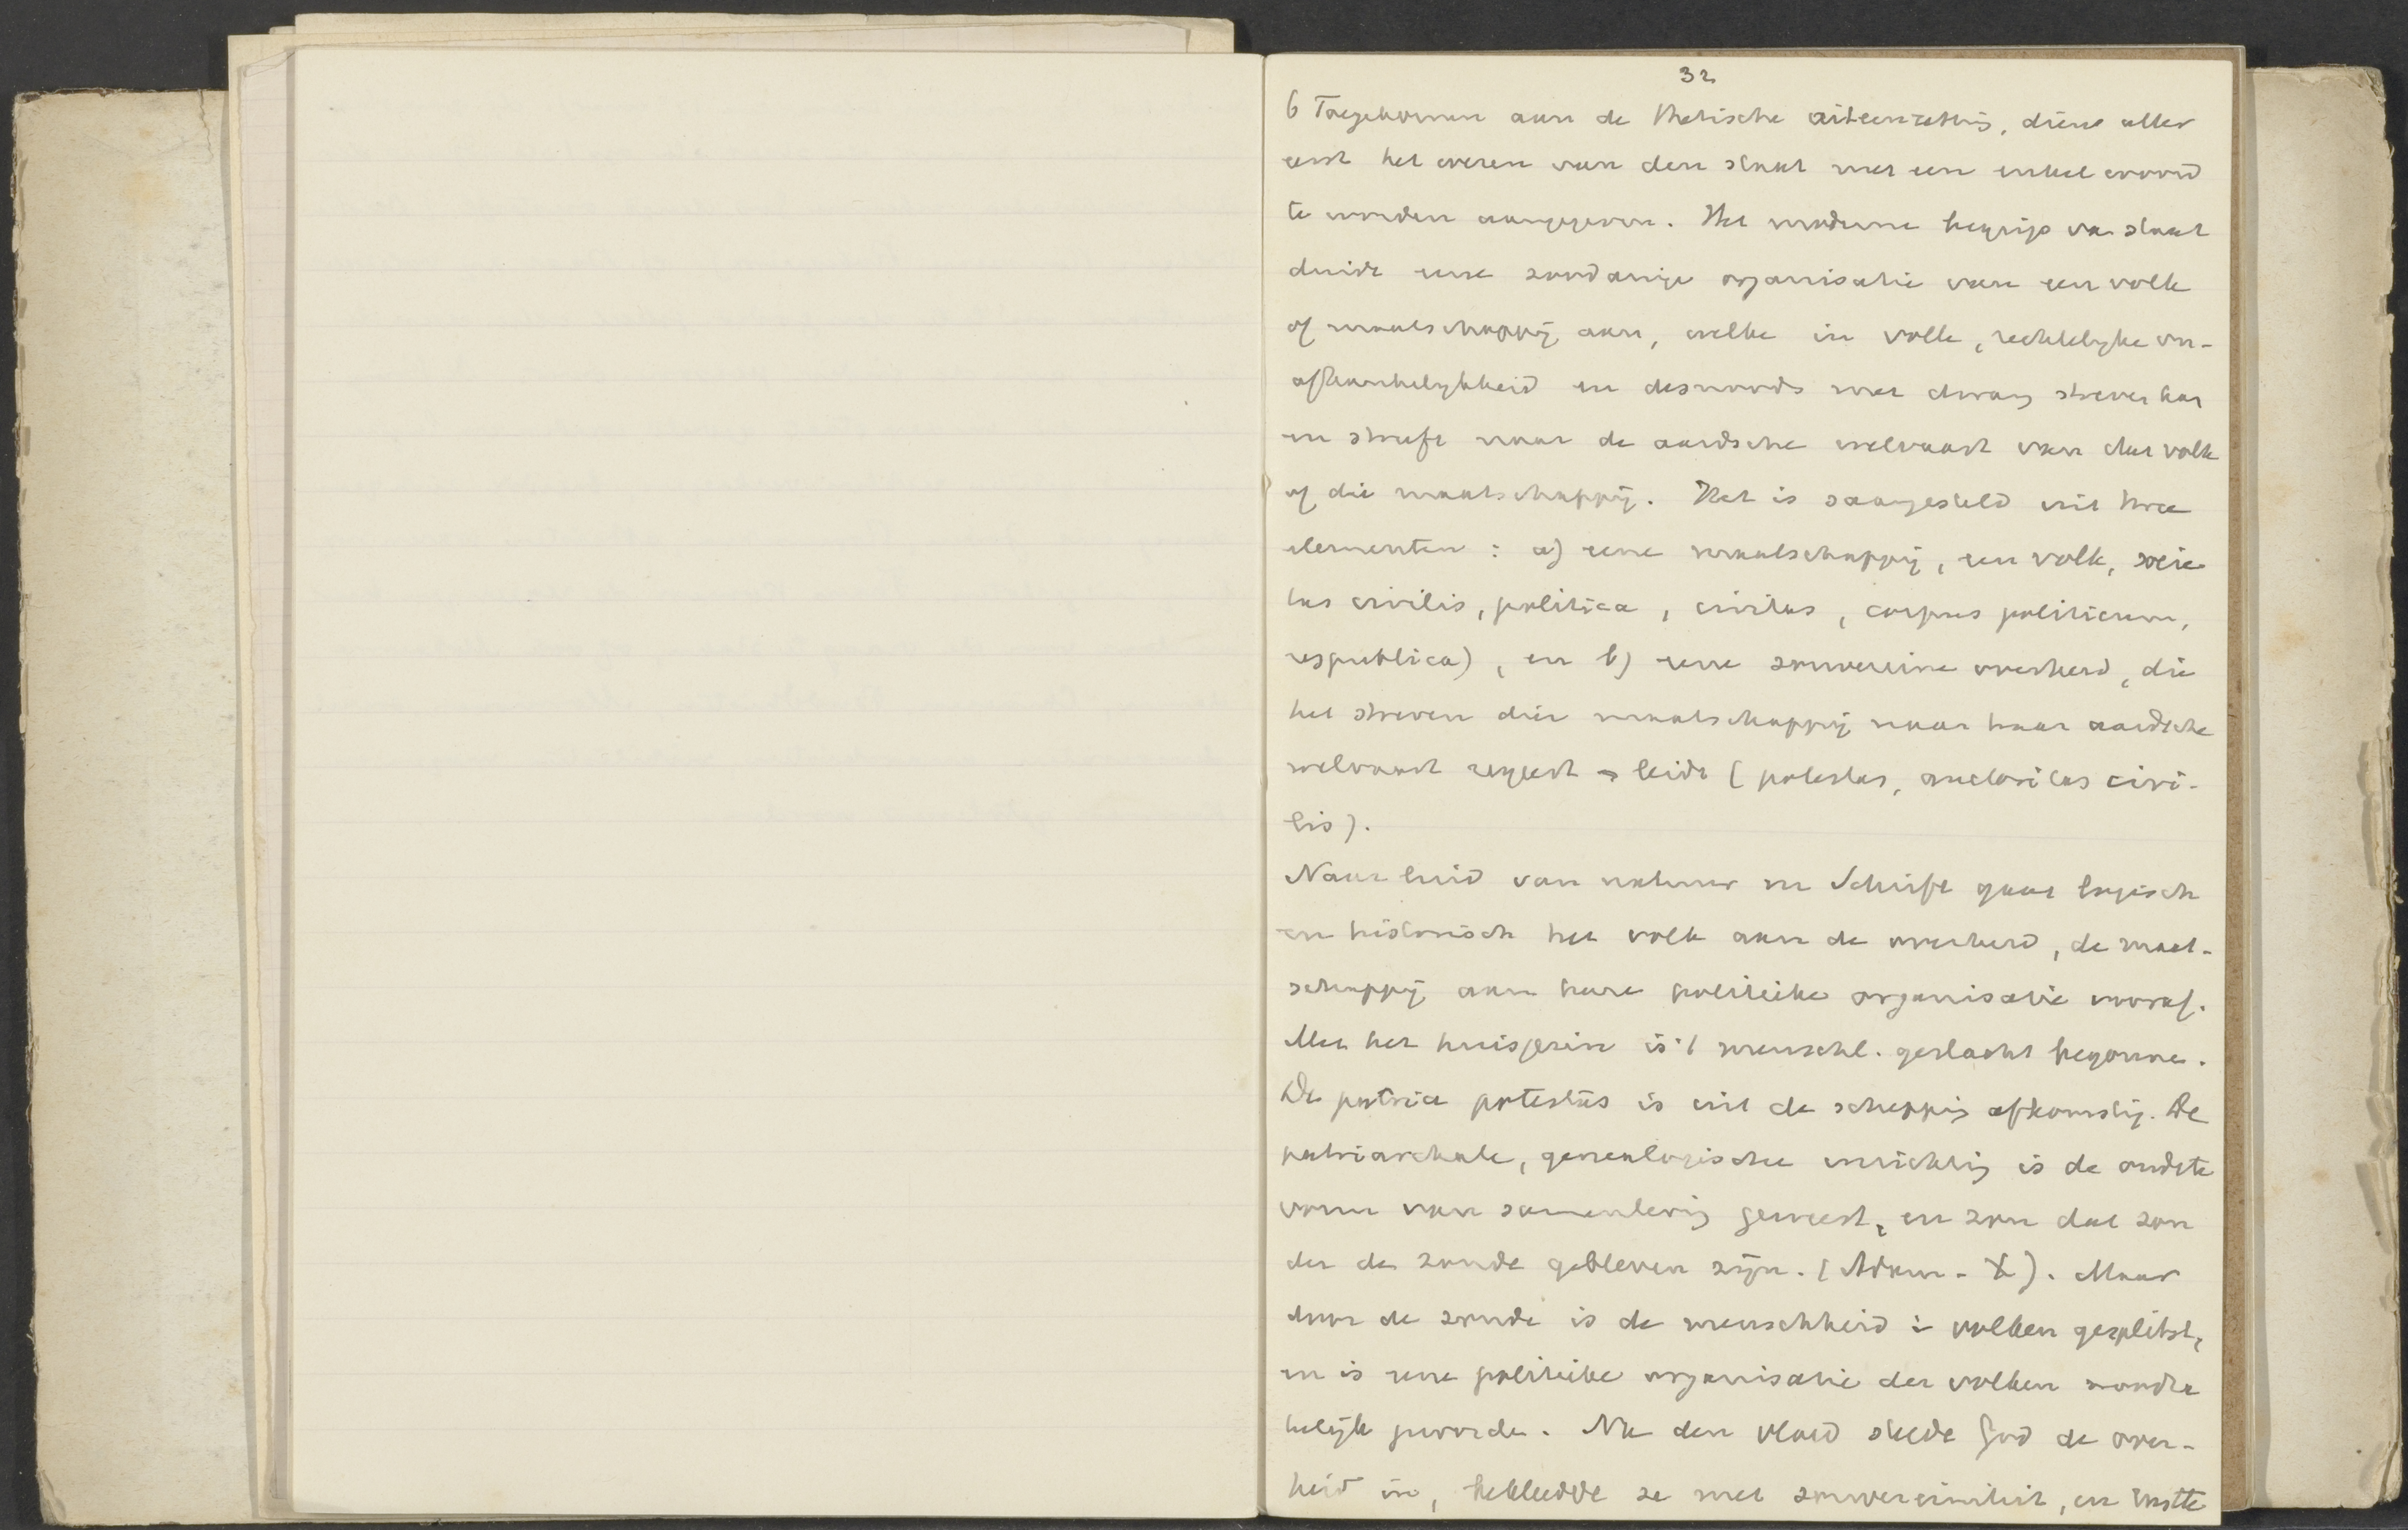 32
6 Toegekomen aan de thetische uiteenzetting, dient aller
eerst het wezen van den staat met een enkel woord
te worden aangegeven. Het moderne begrip van staat
duidt eene zoodanige organisatie van een volk
of maatschappij aan, welke in volle, rechtelijke on-
afhankelijkheid en desnoods met dwang streven kan
en streeft naar de aardsche welvaart van dat volk
of die maatschappij. Het is saamgesteld uit twee
elementen : a) eene maatschappij, een volk, socie
tas civilis, politica, civitas, corpus politicum,
respublica), en b) eene souvereine overheid, die
het streven dier maatschappij naar haar aardsche
welvaart regeert en leidt (potestas, auctoritas civi-
lis).
Naar luid van natuur en Schrift gaat logisch
en historisch het volk aan de overheid, de maat-
schappij aan hare politieke organisatie vooraf.
Met het huisgezin is 't menschl. geslacht begonnen.
De patria potestas is uit de schepping afkomstig. De
patriarchale, genealogische inrichting is de oudste
vorm van samenleving geweest, en zou dat zon
der de zonde gebleven zijn. (Adam - X). Maar
door de zonde is de menschheid in volken gesplitst,
en is eene politieke organisatie der volken noodza
kelijk geworden. Na den vloed stelde God de over-
heid in, bekleedde ze met souvereiniteit, en rustte